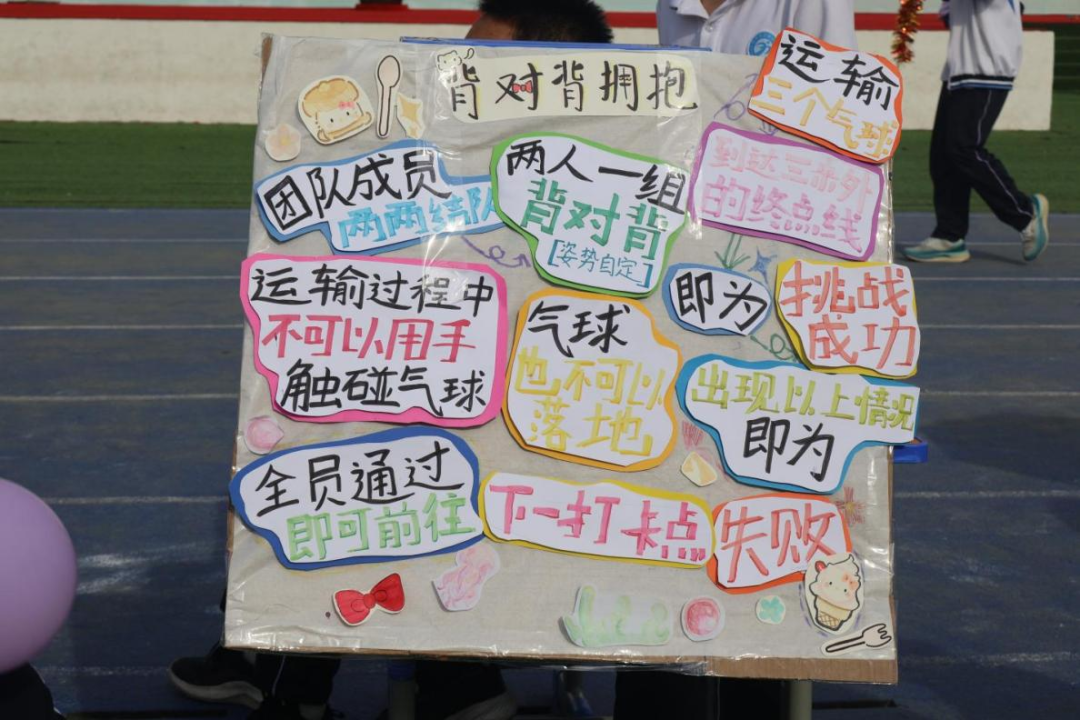 背对背拥抱
团队成员
两两结队
两人一组
背对背
[姿势自定]
运输
三个气球
到达三米外
的终点线
即为
挑战
成功
运输过程中
不可以用手
触碰气球
气球
也不可以
落地
出现以上情况
即为
失败
全员通过
即可前往
下一打卡点